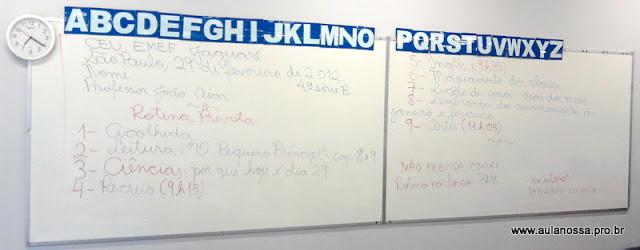 ABCDEFGHIJKLMNO
CEU EMEF Jaguaré
São Paulo, 29 de fevereiro de 2.012
Nome 4ª série B
Professor João
Rotina Prevista
1- Acolhida
2- Leitura: "O Pequeno Príncipe" - cap. 8 e 9
3- Ciências: por que hoje é dia 29
4- Recreio (9h15)
PQRSTUVWXYZ
5- Inglês (9h35)
6- Mapeamento da classe
7- Lição de casa: dias do mês
8- Lembrança dos aniversariantes de
janeiro e fevereiro
9- Artes (11h05)
NÃO PRECISA COPIAR
Rotina na lousa
www.aulanossa.pro.br